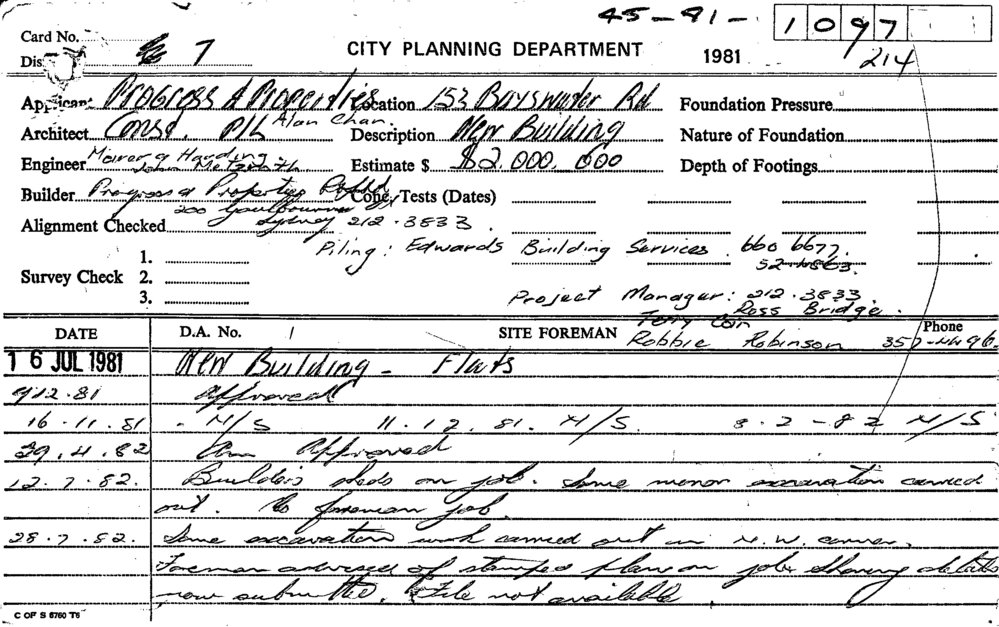 45-81-1097
Card No.
Dis. 7 CITY PLANNING DEPARTMENT 1981 214
Applicant Progress & Properties Location 153 Bayswater Rd Foundation Pressure
Architect Const. P/L Alan Chan. Description New Building Nature of Foundation
Engineer Harding John Estimate $ $2.000.000 Depth of Footings
Builder Progress & Properties Cone Tests (Dates)
200 Goulbourn
Alignment Checked Sydney 212.3833
Piling: Edwards Building Services. 660 6677.
1.
Survey Check 2.
3.
Project Manager: 212.3833.
Ross Bridge.
DATE D.A. No. 1 SITE FOREMAN Terry Phone
Robbie Robinson 357-4496
16 JUL 1981 New Building - Flats
9.12.81 Approved
16.11.81 - N/S 11.12.81. N/S. 3.2-82 N/S
29.4.82 Am Approved
12.7.82. Builders sheds on job. Some minor excavation carried
out. No foreman job.
28.7.82. Some excavation work carried out in N.W. corner.
Foreman advised of stamped plans on job. Shoring details
now submitted. File not available.
C OF S 6760 T6